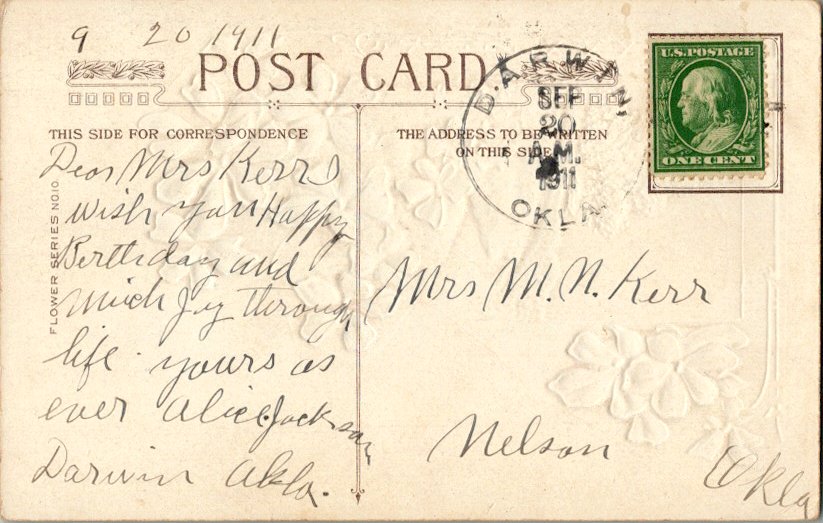 9 20 1911
POST CARD
THIS SIDE FOR CORRESPONDENCE
THE ADDRESS TO BE WRITTEN
ON THIS SIDE
DARWIN,
SEP
20
A.M.
1911
OKLA.
U.S. POSTAGE
ONE CENT
FLOWER SERIES NO. 10
Dear Mrs Kerr I
wish you Happy
Berthday and
much Joy through
life. yours as
ever Alice Jackson
Darwin Okla.
Mrs M. N. Kerr
Nelson
Okla